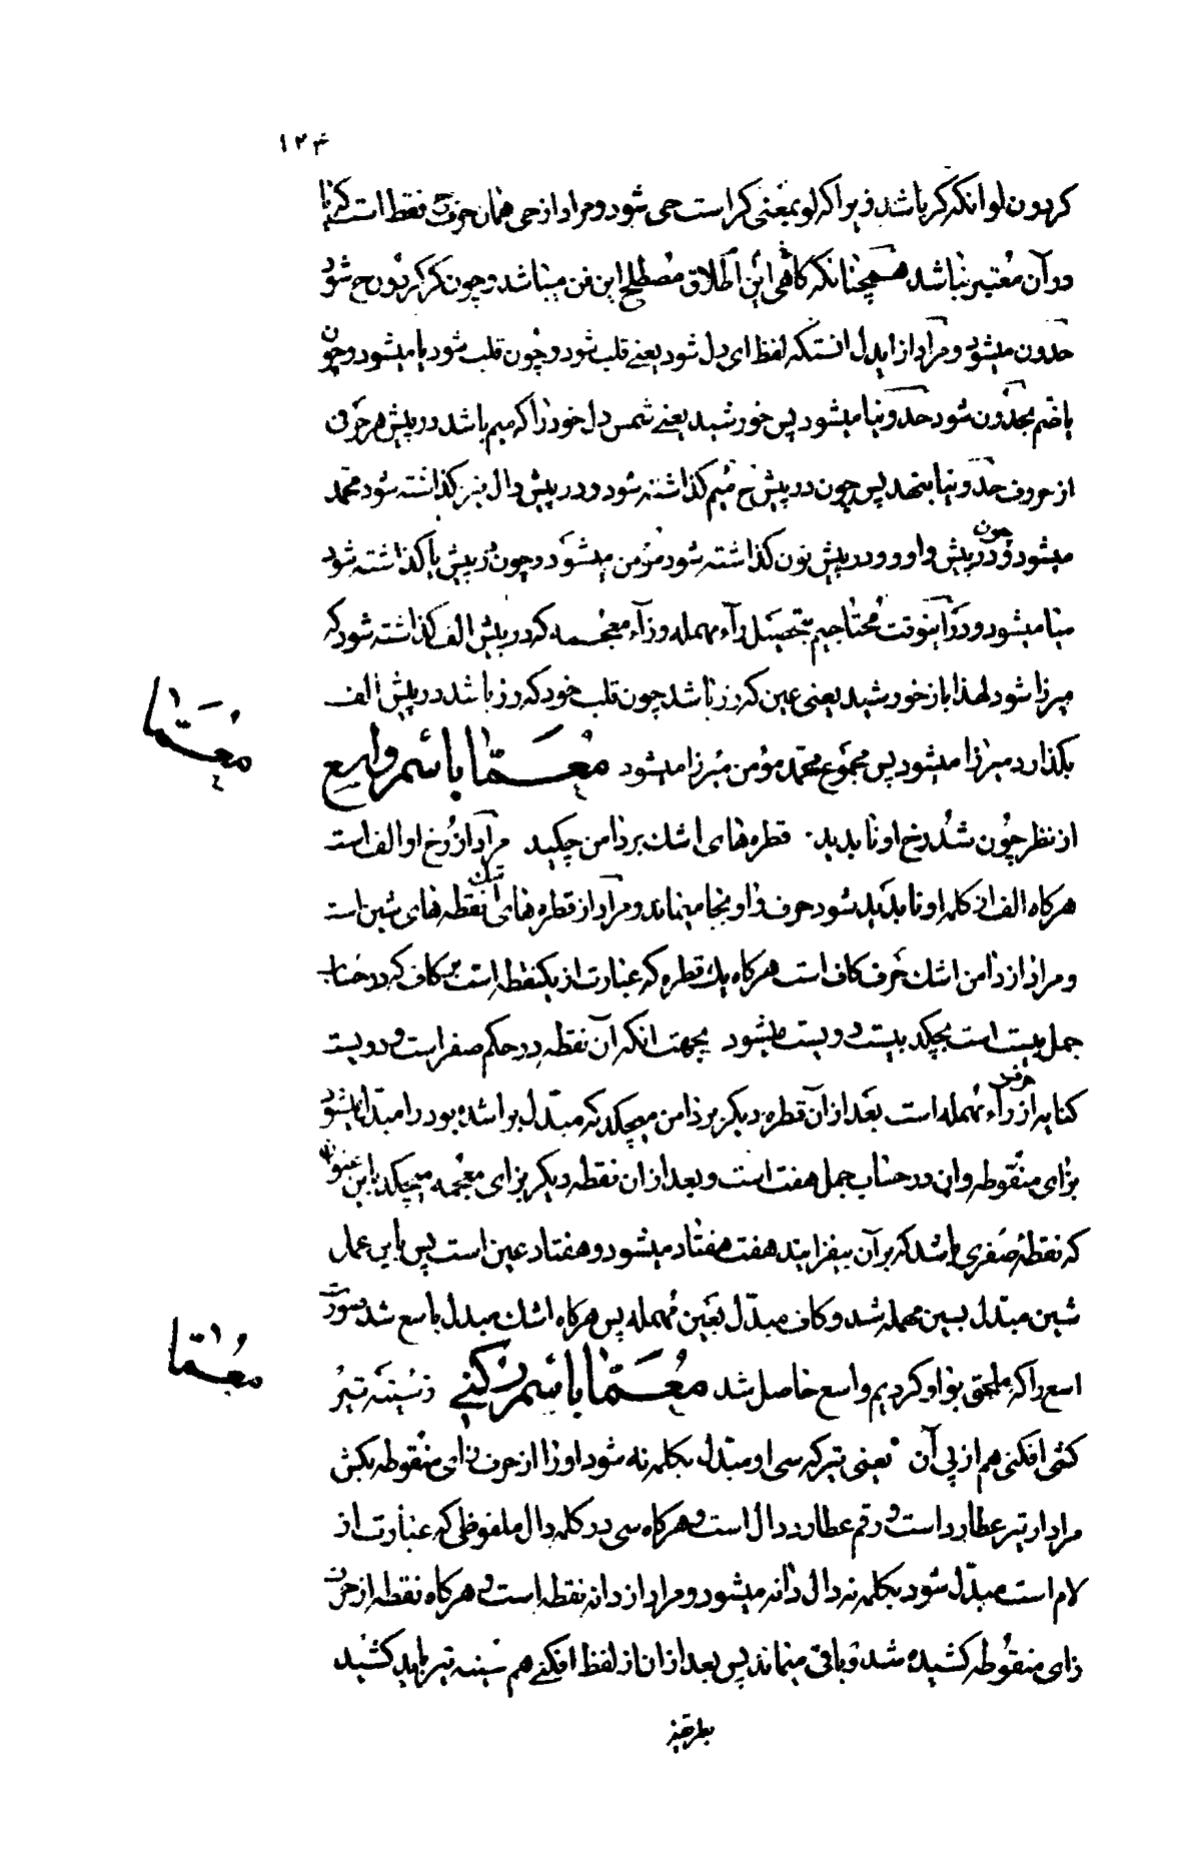 ۱۲۴
کر بدون لو انکه کر باشد زیرا که لو بمعنی کر است حی شود و مراد از حی همان حرف ح فقط است که یا
در آن معتبر نباشد همچنانکه کاهی این اطلاق مصطلح این فن میباشد و چون کر کر بدون ح شود
حدون میشود و مراد از ایدل انستکه لفظ ای دل شود یعنے قلب شود و چون قلب شود یا میشود و چون
با ضم بحدون شود حدونیا میشود پس خورشید یعنے شمس دل خود را که میم باشد در پیش هر حرفی
از حروف حدونیا بنهد پس چون در پیش ح میم کذاشته شود و در پیش دال نیز کذاشته شود محمد
میشود و چون در پیش واو و در پیش نون کذاشته شود مؤمن میشود و چون در پیش یا کذاشته شود
میا میشود و در اینوقت محتاجیم بتحصیل رآء مهمله و زآء معجمه که در پیش الف کذاشته شود که
میرزا شود لهذا باز خورشید یعنی عین که زر باشد چون قلب خود که رز باشد در پیش الف
بکذارد میرزا میشود پس مجموع محمد مؤمن میرزا میشود معمّا باسم واسع
معمّا
از نظر چون شد رخ او ناپدید قطره های اشک بر دامن چکید مراد از رخ او الف است
هرکاه الف از کلمه او ناپدید شود حرف واو بجا میماند و مراد از قطره های اشک نقطه های شین است
و مراد از دامن اشک حرف کاف است هرکاه یک قطره که عبارت از یکنقطه است بر کاف که در حساب
جمل بیست است بچکد بیست دویست میشود بجهت انکه آن نقطه در حکم صفر است و دویست
کنایه از حرف رآء مهمله است بعد از آن قطره دیکر بر دامن میچکد که مبدل برا شده بود را مبدل میشود
بزای منقوطه و ان در حساب جمل هفت است و بعد از ان نقطه دیکر بزای معجمه میچکد باین عنوان
که نقطه صفری باشد که بر آن بیفزایند هفت هفتاد میشود و هفتاد عین است پس باین عمل
شین مبدل بسین مهمله شد و کاف مبدل بعین مهمله پس هرکاه اشک مبدل باسع شد و صورت
اسع را که ملحق بواو کردیم واسع حاصل شد معمّا باسم زکی ز سینه تیر
معمّا
کشی افکنی هم از پی آن یعنی تیر که سی او مبدل بکلمه نه شود او را از حرف زای منقوطه بکش
مراد از تیر عطارد است و رقم عطارد دال است و هرکاه سی در کلمه دال ملفوظی که عبارت از
لام است مبدل شود بکلمه نه دال دانه میشود و مراد از دانه نقطه است و هرکاه نقطه از حرف
زای منقوطه کشیده شد ر باقی میماند پس بعد از ان از لفظ افکنے هم سینه تیر باید کشید